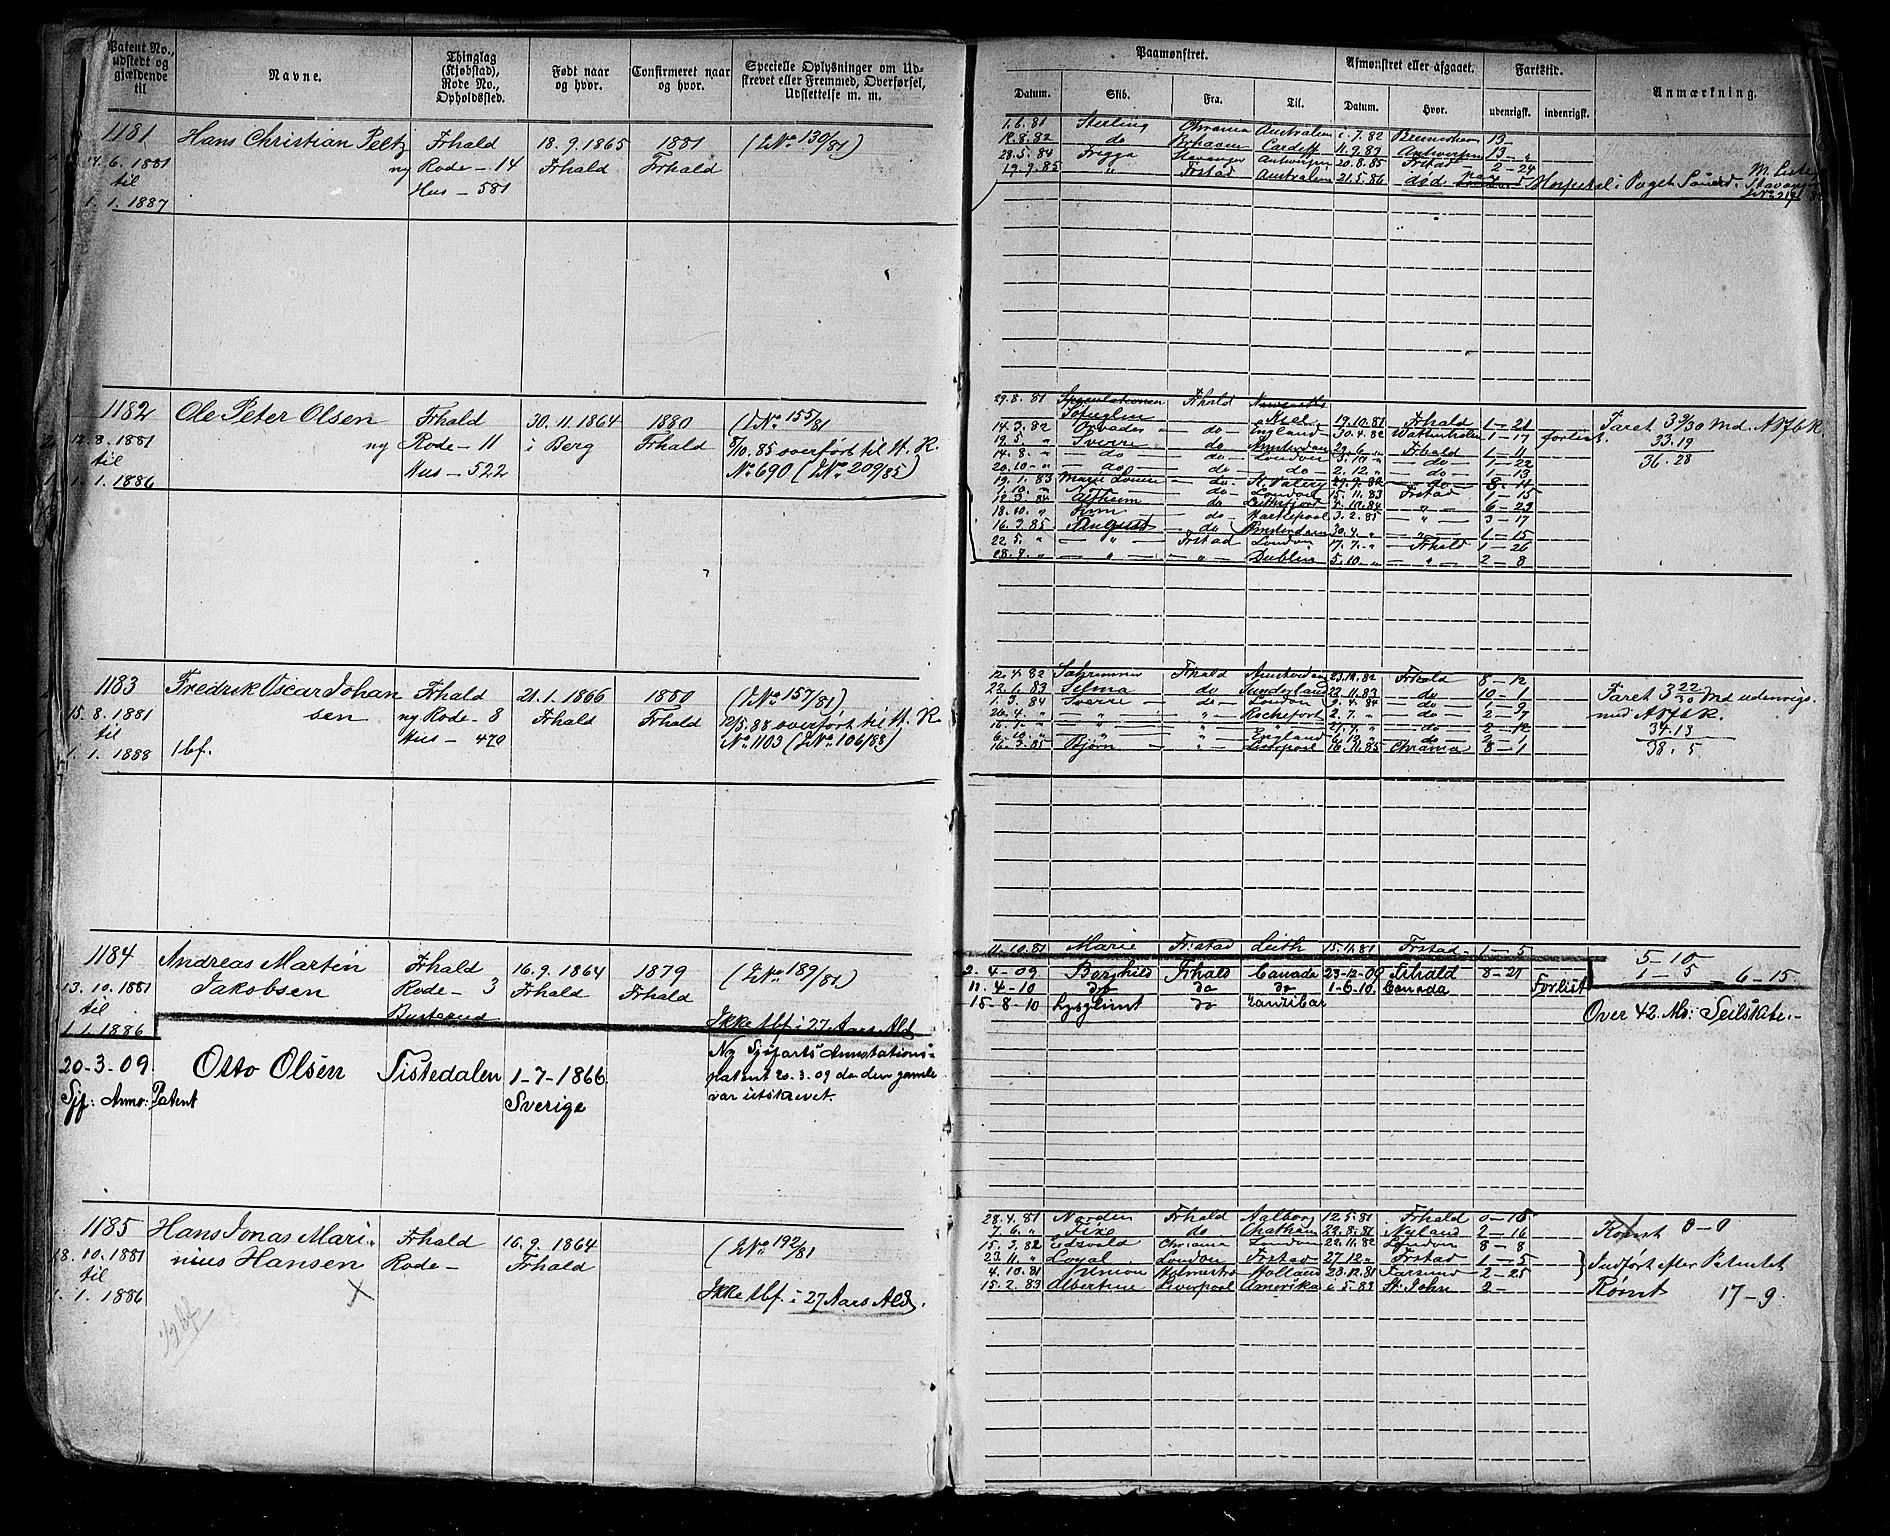 Patent No., udstedt og gjældende til
Navne.
Thinglag (Kjøbstad), Rode No., Opholdssted.
Født naar og hvor.
Confirmeret naar og hvor.
Specielle Oplysninger om Udskrevet eller Fremmed, Overførsel, Udslettelse m. m.
Paamønstret.
Afmønstret eller afgaaet.
Fartstid.
Anmærkning.
Datum.
Skib.
Fra.
Til.
Datum.
Hvor.
udenrigsk.
indenrigsk.
1181
14.6.1881
til
1.1.1887
Hans Christian Peltz
ny
Frhald
Rode - 14
Hus - 581
18.9.1865
Frhald
1881
Frhald
(J.No 130/81)
1.6.81 Sterling Chrania Australien 1.7.82 Bremerhaven 13 -
do Cardiff 11.9.83 Antwerpen 13 - "
28.5.84 Frigga Stavanger Antwerpen 20.8.85 Frstad 2 - 24
19.9.85 " Frstad Australien 21.5.86 død paa Hospital i Puget Sound.
1182
12.8.1881
til
1.1.1886
Ole Peter Olsen
ny
Frhald
Rode - 11
Hus - 522
30.11.1864
i Berg
1880
Frhald
(J.No 155/81
8/10.85 overført til H. R.
No 690 (J.No 209/85)
29.8.81 Frhald
Kiel 19.10.81 Frhald 1 - 21
14.3.82 do England 30.4.82 1 - 17 forlist
19.5. " Sverre do Frhald 1 - 11
14.8. " do do London do 1 - 22
20.10. " do do do 2.12. " do 1 - 13
19.1.83 Marie Louise do St. Valery do 8 - 14
do London 15.11.83 Frstad 1 - 15
do 6 - 23
18.10. " do Hartlepool 3.2.85 " 3 - 17
16.3.85 August do Amsterdam 30.4. " " 1 - 15
22.5. " " Frstad London 17.7. " Frhald 1 - 26
" " Dublin 5.10. " " 2 - 8
33.19
36.28
1183
15.8.1881
til
1.1.1888
Fredrik Oscar Johan
sen
1bf.
Frhald
ny Rode - 8
Hus - 470
21.1.1866
Frhald
1880
Frhald
(J.No 157/81)
12/5.88 overført til H. R.
No 1103 (J.No 106/88)
12.4.82 Frhald 23.12.82 Frhald 8 - 12
22.6.83 Selma do Sunderland 22.11.83 do 10 - 1
1.3.84 Sverre do London 9.4.84 do 1 - 9
" " Rochefort 2.7. " do 2 - 7
6.10. " " " England do
16.3.85 Bjørn " Liverpool 16.11.85 Chrania 8 - 1
Faret 3 22/30 Md udenrigs.
34.13
38.5
1184
13.10.1881
til
1.1.1886
Andreas Martin
Jakobsen
Frhald
Rode - 3
16.9.1864
Frhald
1879
Frhald
(J.No 189/81)
Ikke tbf. i 27 Aars Ald
11.10.81 Marie Frstad Leith 15.11.81 Frstad. 1 - 5
5 10
1 - 5 - 6-15.
20-3-09
Sjf: Anno: Patent
Otto Olsen
Tistedalen
1-7-1866
Sverige
Ny Sjøfarts Annotations-
patent 20.3.09 da den gamle
var utskrevet.
2-4-09 Borghild Frhald Canada 23-12-09 Frhald 8-21
11-4-10 do do do 1-6-10 Canada Forlist
15-8-10 Lysglimt do Zanzibar
Over 42. Md: Seilskibe.-
1185
18.10.1881
til
1.1.1886
Hans Jonas Mari-
nius Hansen
Frhald
Rode -
16.9.1864
Frhald
(J.No 192/81
Ikke tbf. i 27 Aars Ald.
28.4.81 Norden Frhald Aalborg 12.5.81 Frhald 0 - 15
7.6. " do Chatham 22.8.81 Nyland 2 - 16
15.3.82 Chrania London 22.11.82 London 8 - 8
23.11. " Loyal London Frstad 27.12. " Frstad 1 - 5
4.10.81 Holmestr. Holland 23.12.81 Farsund 2 - 25
15.2.83 Albertine Liverpool Amerika 6.5.83 St. John 2 -
Rømt 0 - 0
Indført efter Patentet
Rømt 17 - 9.